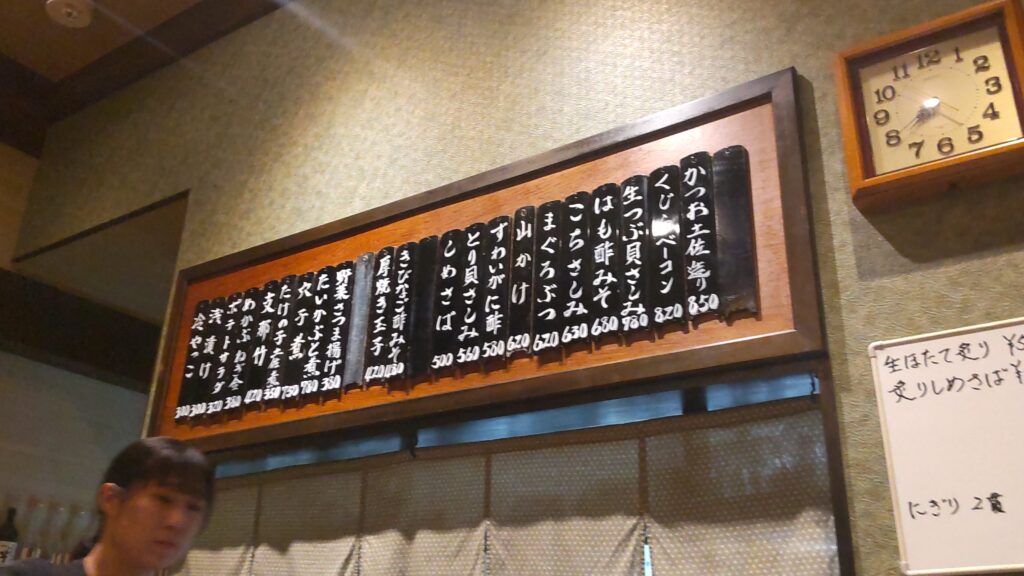 かつお土佐造り 850
くじらベーコン 820
生つぶ貝さしみ 780
はも酢みそ 680
こちさしみ 630
まぐろぶつ 620
山かけ 620
ずわいがに酢 580
とり貝さしみ 560
しめさば 500
きびなご酢みそ 480
厚焼き玉子 420
野菜さつま揚げ 380
たいかぶと煮 780
穴子煮 750
たけの子土佐煮 380
支那竹 420
めかぶねぎ合 380
ポテトサラダ 320
浅漬け 300
冷やっこ 300
11 12 1
10 2
9 3
8 4
7 6 5
生ほたて炙り
炙りしめさば
にぎり 2貫